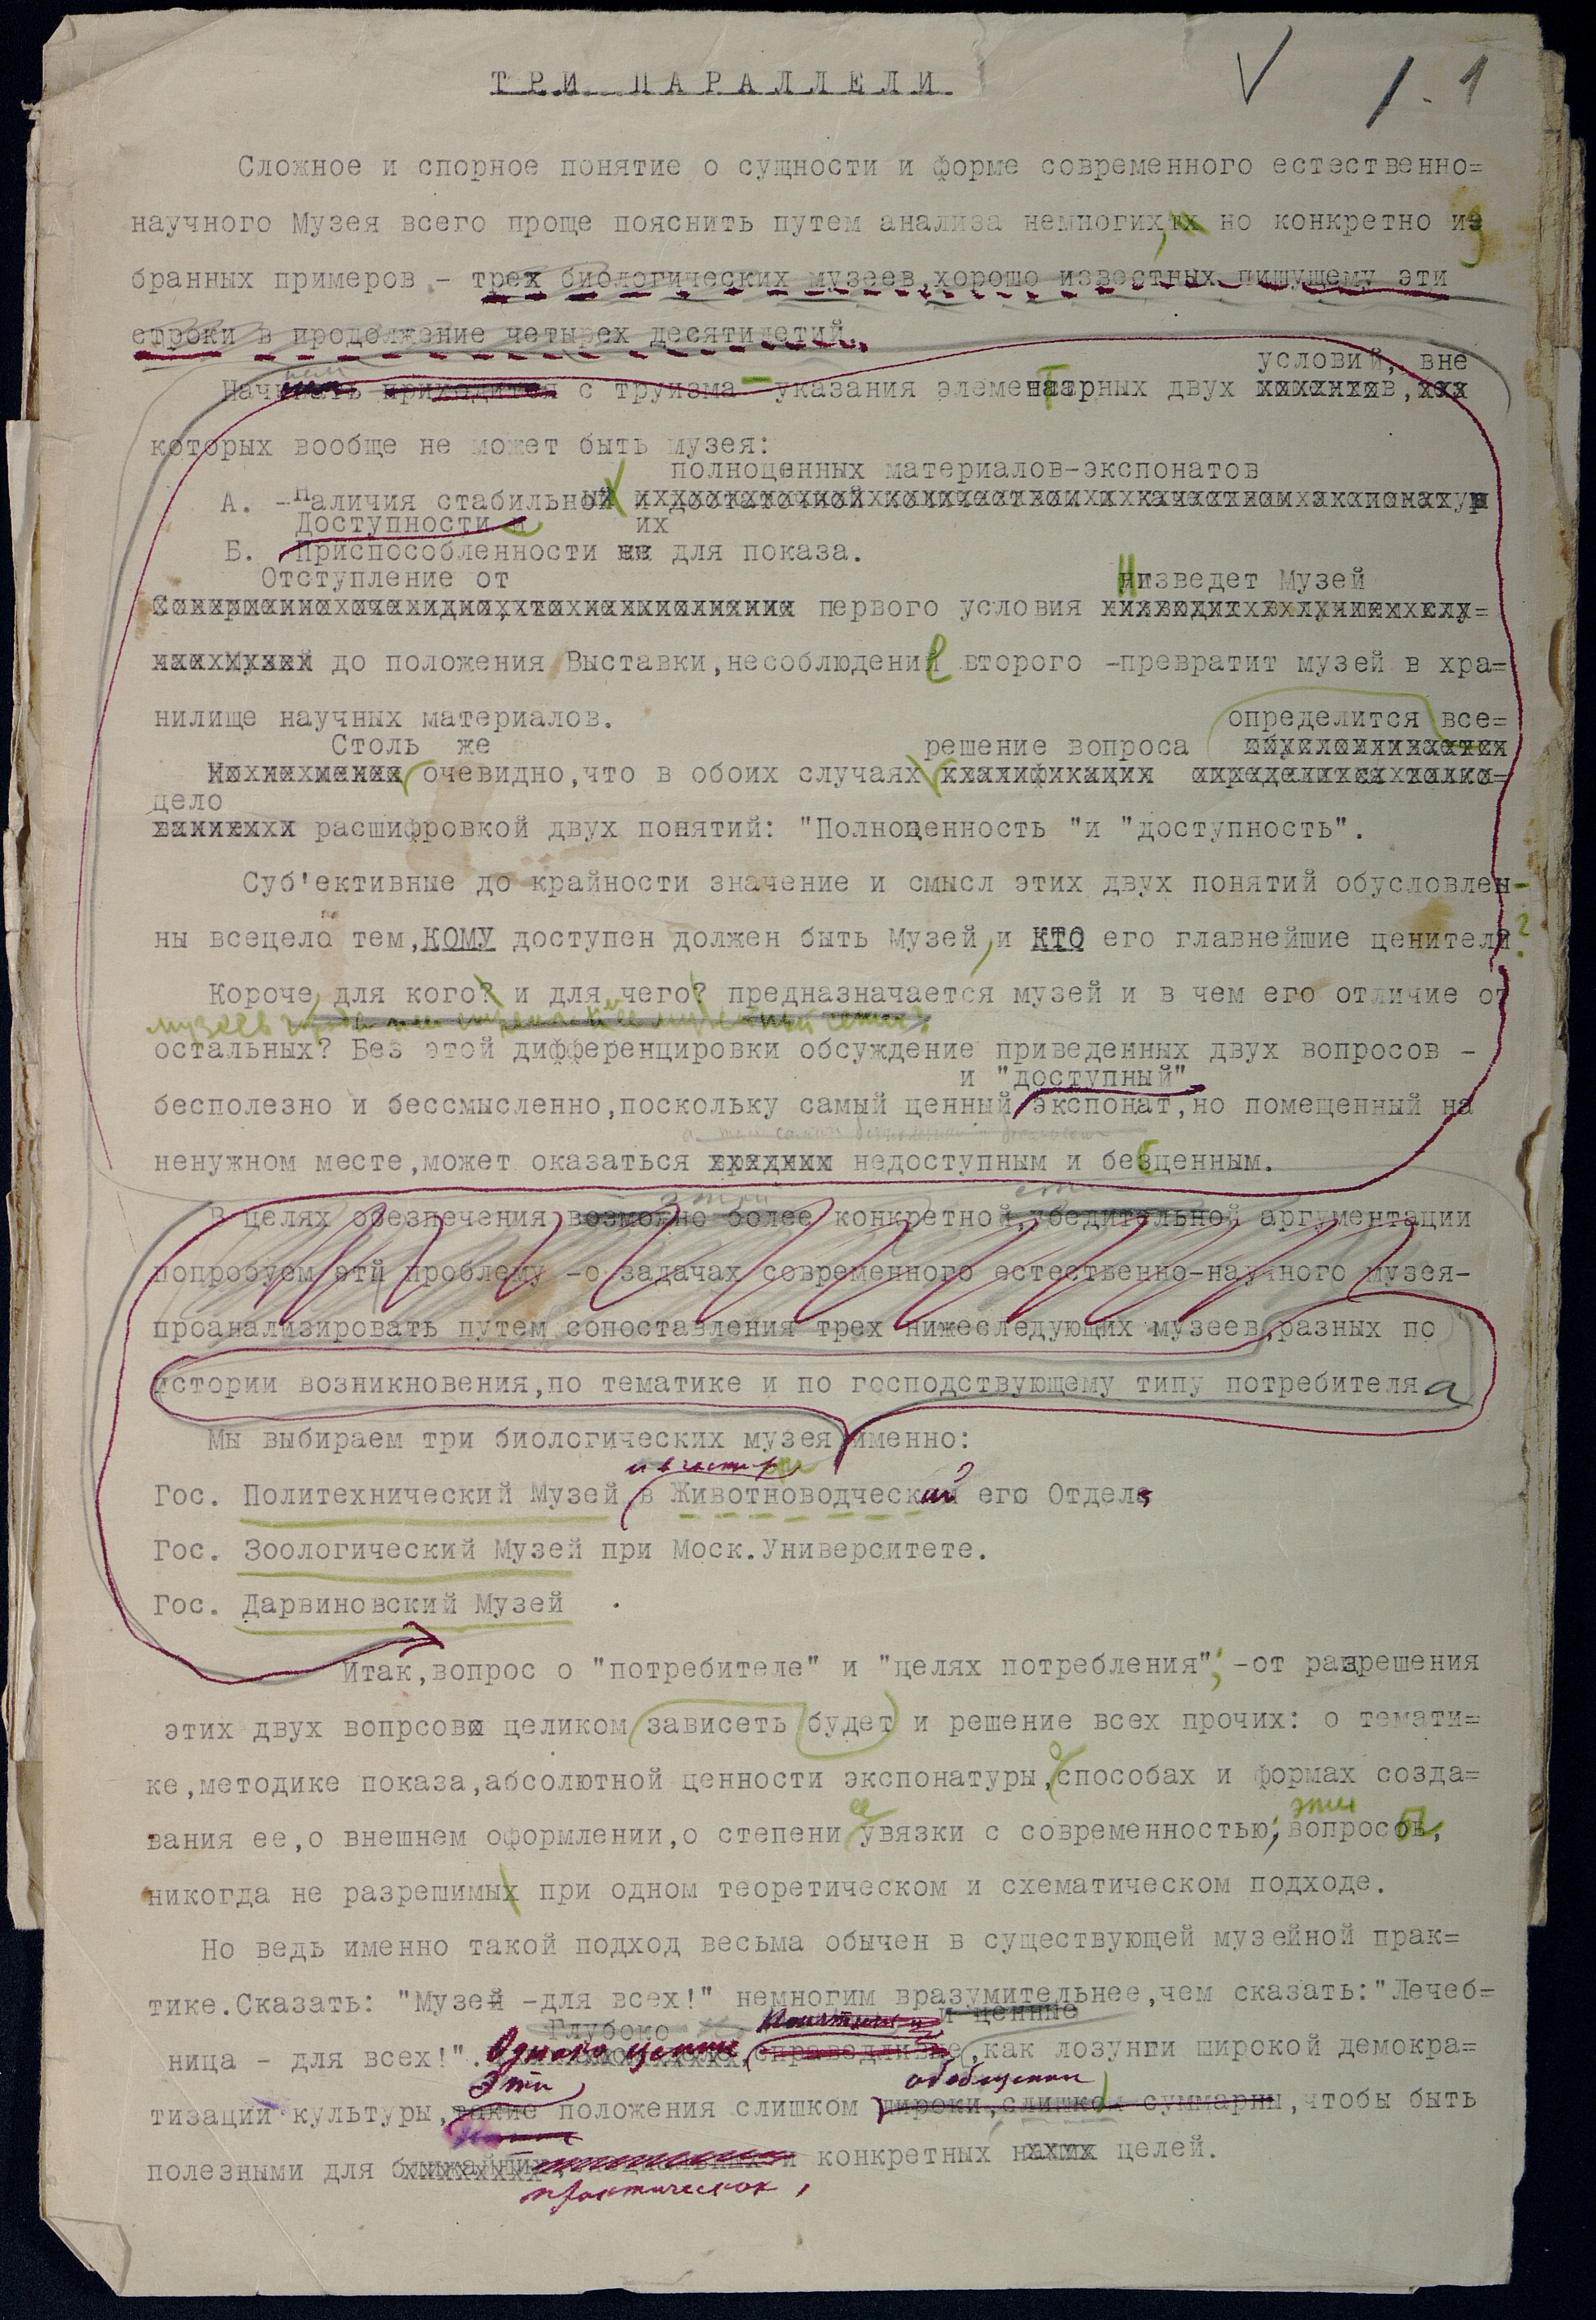 ТРИ ПАРАЛЛЕЛИ
V 1. 1
Сложное и спорное понятие о сущности и форме современного естественно=
научного Музея всего проще пояснить путем анализа немногих, но конкретно из
бранных примеров - трех биологических музеев,хорошо известных пишущему эти
строки в продолжение четырех десятилетий.
условий, вне
Начинать приходится с труизма - указания элементарных двух
которых вообще не может быть музея:
полноценных материалов-экспонатов
А. -Наличия стабильной
Доступности и их
Б. Приспособленности для показа.
Отступление от низведет Музей
первого условия
до положения Выставки,несоблюдение второго -превратит музей в хра=
нилище научных материалов.
определится все=
Столь же решение вопроса
очевидно,что в обоих случаях
цело
расшифровкой двух понятий: "Полноценность "и "доступность".
Суб'ективные до крайности значение и смысл этих двух понятий обусловлен-
ны всецело тем,КОМУ доступен должен быть Музей, и КТО его главнейшие ценители?
Короче, для кого? и для чего? предназначается музей и в чем его отличие от
музеев
остальных? Без этой дифференцировки обсуждение приведенных двух вопросов -
и "доступный"
бесполезно и бессмысленно,поскольку самый ценный экспонат,но помещенный на
ненужном месте,может оказаться недоступным и бесценным.
этой
В целях обезпечения возможно более конкретной,убедительной аргументации
попробуем этй проблему -о задачах современного естественно-научного музея-
проанализировать путем сопоставления трех нижеследующих музеев,разных по
истории возникновения,по тематике и по господствующему типу потребителя а
Мы выбираем три биологических музея именно:
Гос. Политехнический Музей в Животноводческий его Отдел,
Гос. Зоологический Музей при Моск.Университете.
Гос. Дарвиновский Музей .
Итак,вопрос о "потребителе" и "целях потребления"; -от разрешения
этих двух вопрсов целиком зависеть будет и решение всех прочих: о темати=
о
ке,методике показа,абсолютной ценности экспонатуры,способах и формах созда=
ее эти
вания ее,о внешнем оформлении,о степени увязки с современностью; вопросы,
никогда не разрешимы при одном теоретическом и схематическом подходе.
Но ведь именно такой подход весьма обычен в существующей музейной прак=
тике.Сказать: "Музей -для всех!" немногим вразумительнее,чем сказать:"Лечеб=
Глубоко и ценные
ница - для всех!". Однако ценные справедливые,как лозунги широкой демокра=
Эти обобщенны
тизации культуры,такие положения слишком широки,слишком суммарны,чтобы быть
полезными для конкретных целей.
практических,